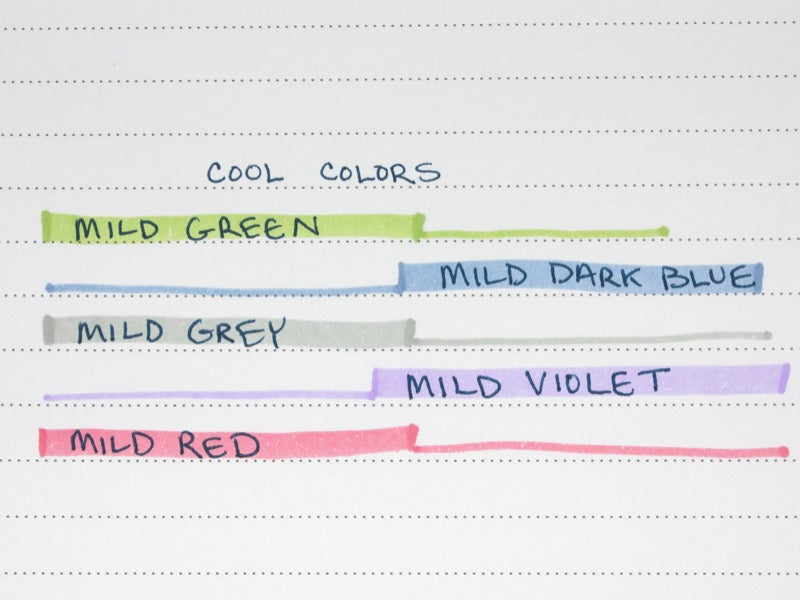 COOL COLORS
MILD GREEN
MILD DARK BLUE
MILD GREY
MILD VIOLET
MILD RED